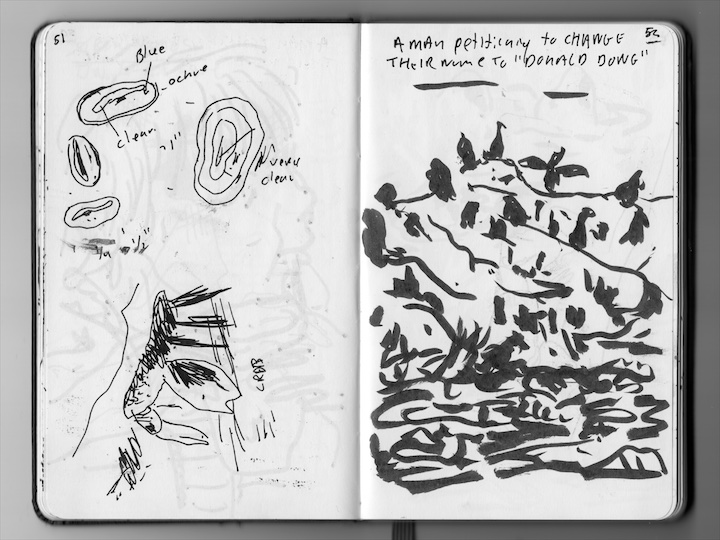 51
Blue
ochre
clear
1"
very
clear
1/4" 1/2"
CRAB
52
A MAN petitioning to CHANGE
THEIR name TO "DONALD DONG"